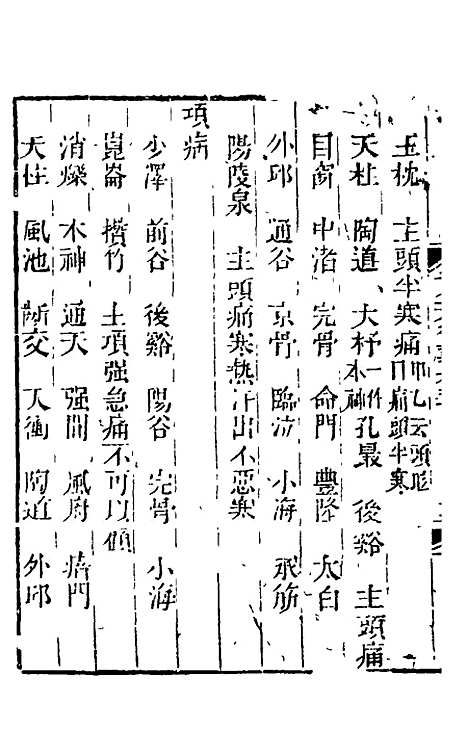 玉枕 主頭半寒痛甲乙云頭眩目痛頭半寒
天柱 陶道 大杼一作本神 孔最 後谿 主頭痛
目窗 中渚 完骨 命門 豐隆 太白
外邱 通谷 京骨 臨泣 小海 承筋
陽陵泉 主頭痛寒熱汗出不惡寒
項病
少澤 前谷 後谿 陽谷 完骨 小海
崑崙 攢竹 主項强急痛不可以傾
消爍 本神 通天 强間 風府 瘖門
天柱 風池 齗交 天衝 陶道 外邱